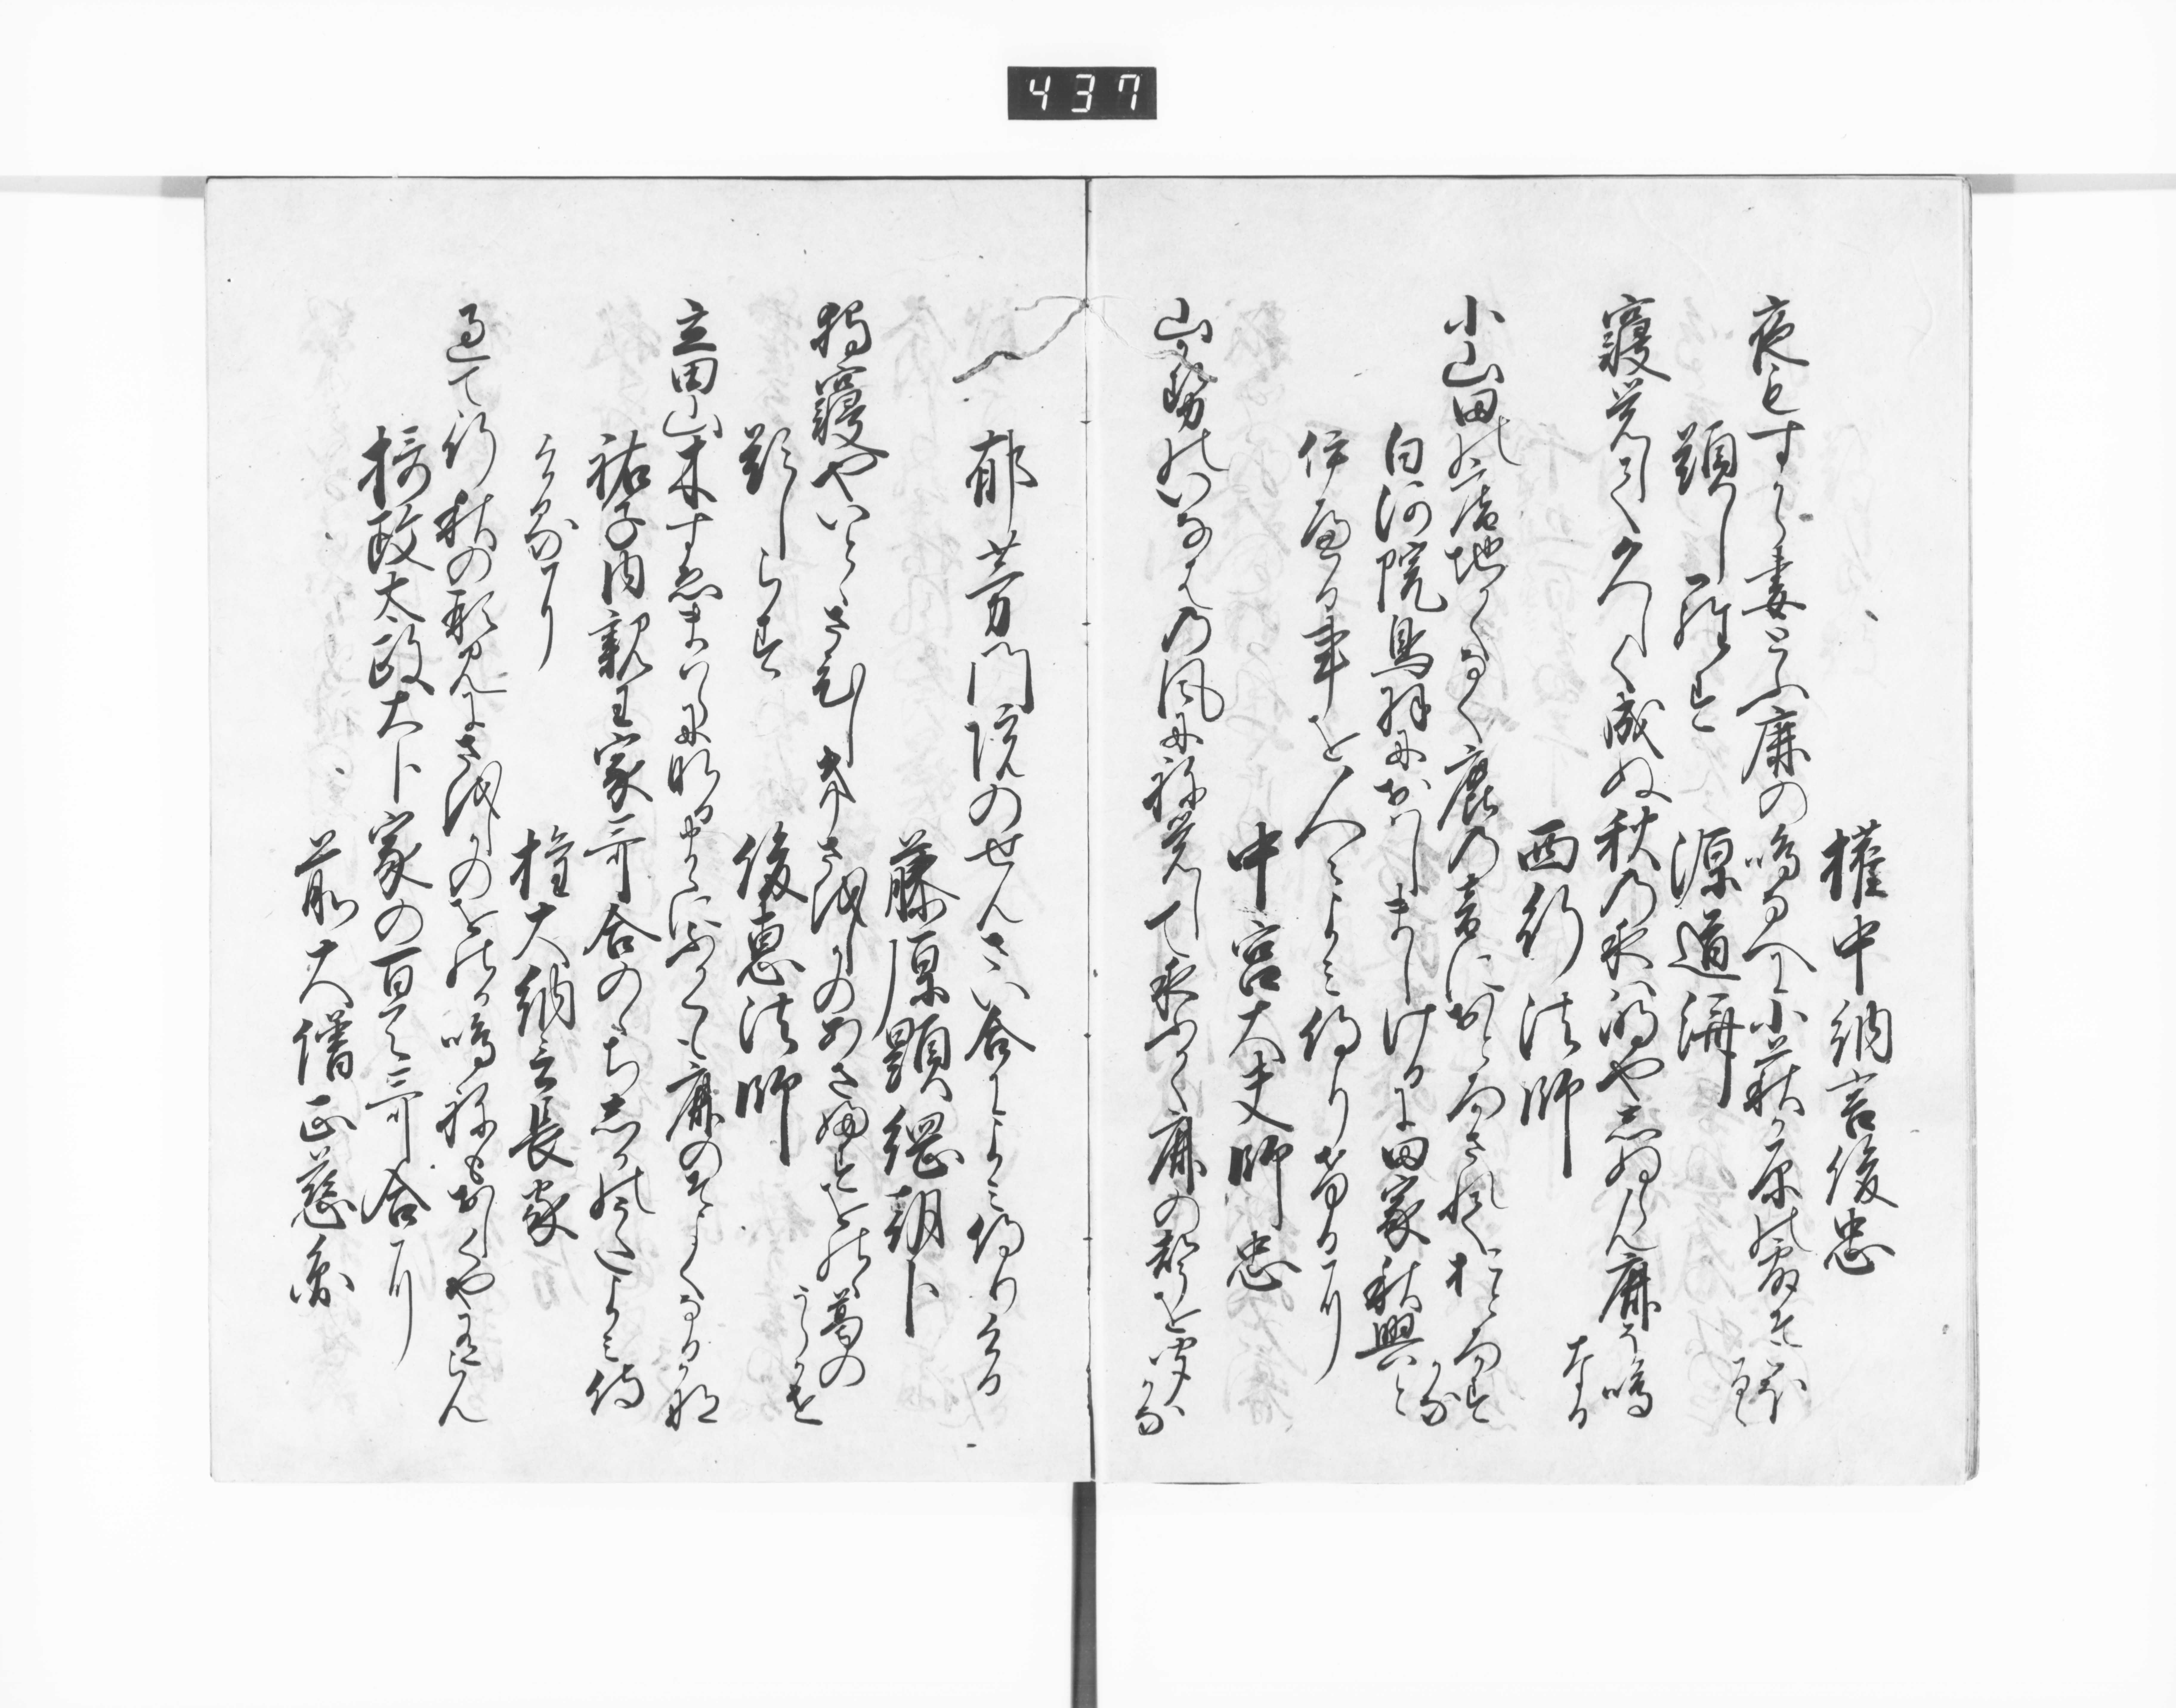 437
権中納言俊忠
夜もすから妻とふ鹿の鳴なへに小萩か原の露そこほ
るゝ
題しらす　源道済
寝覚して久しく成ぬ秋の夜は明やしぬらん鹿そ鳴
なる
西行法師
小山田の庵ちかくなく鹿の音におとろかされておとろかす
かな
白河院鳥羽におはしましけるに田家秋興といへる事を人々よみ侍りけるに
中宮大夫師忠
山里のいなはの風に寝覚して夜ふかく鹿の声を聞かな
郁芳門院のせんさい合によみ侍りける
藤原顕綱朝臣
独寝やいとゝさひしきさをしかのあさふすをのゝ葛の
うら風
題しらす　俊恵法師
立田山木すゑまはらになるまゝに深くも鹿のそよくなるかな
祐子内親王家哥合のゝち鹿の哥よみ侍
けるに
権大納言長家
過て行秋の形見にさをしかのをのか鳴ねもおしくや有らん
摂政太政大臣家の百首哥合に
前大僧正慈円